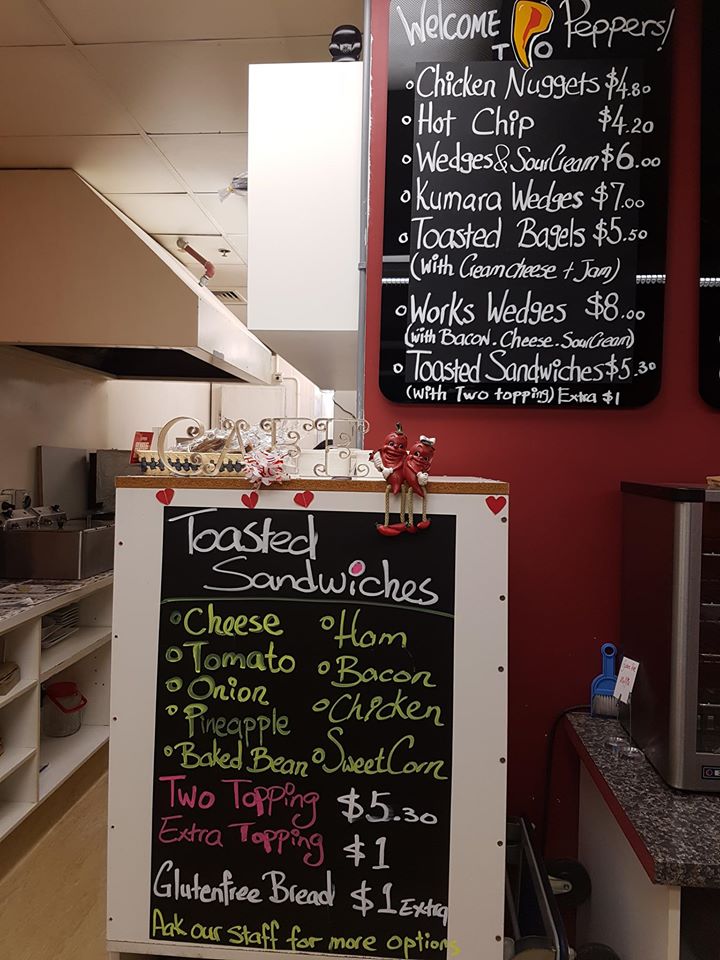 Welcome
To Peppers!
Chicken Nuggets $4.80
Hot Chip $4.20
Wedges & Sour Cream $6.00
Kumara Wedges $7.00
Toasted Bagels $5.50
(with Cream cheese + Jam)
Works Wedges $8.00
(with Bacon. Cheese. Sour Cream)
Toasted Sandwiches $5.30
(with Two topping) Extra $1
CAFE
Toasted
Sandwiches
Cheese Ham
Tomato Bacon
Onion Chicken
Pineapple
Baked Bean Sweet Corn
Two Topping $5.30
Extra Topping $1
Glutenfree Bread $1 Extra
Aak our staff for more options